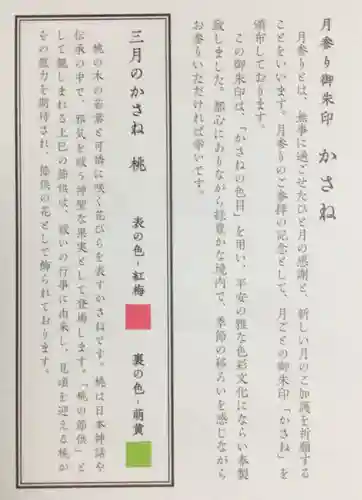 月参り御朱印 かさね
月参りとは、無事に過ごせたひと月の感謝と、新しい月のご加護を祈願する
ことをいいます。月参りのご参拝の記念として、月ごとの御朱印「かさね」を
頒布しております。
この御朱印は、「かさねの色目」を用い、平安の雅な色彩文化にならい奉製
致しました。都心にありながら緑豊かな境内で、季節の移ろいを感じながら
お参りいただければ幸いです。
三月のかさね 桃 表の色-紅梅 裏の色-萌黄
桃の木の若葉と可憐に咲く花びらを表すかさねです。桃は日本神話や
伝承の中で、邪気を祓う神聖な果実として登場します。「桃の節供」と
して親しまれる上巳の節供は、祓いの行事に由来し、見頃を迎える桃が
その霊力を期待され、節供の花として飾られております。